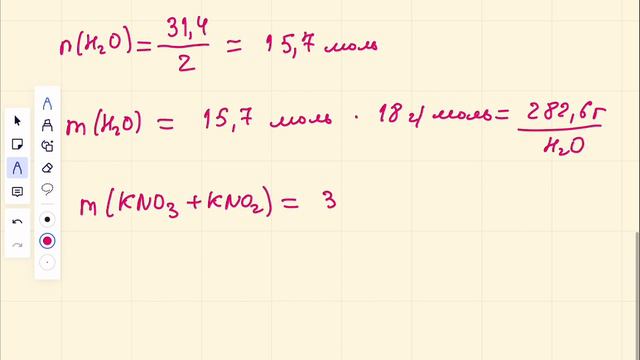 n(H₂O) = 31,4 / 2 = 15,7 моль
m(H₂O) = 15,7 моль · 18 г/моль = 282,6 г H₂O
m(KNO₃ + KNO₂) = 3